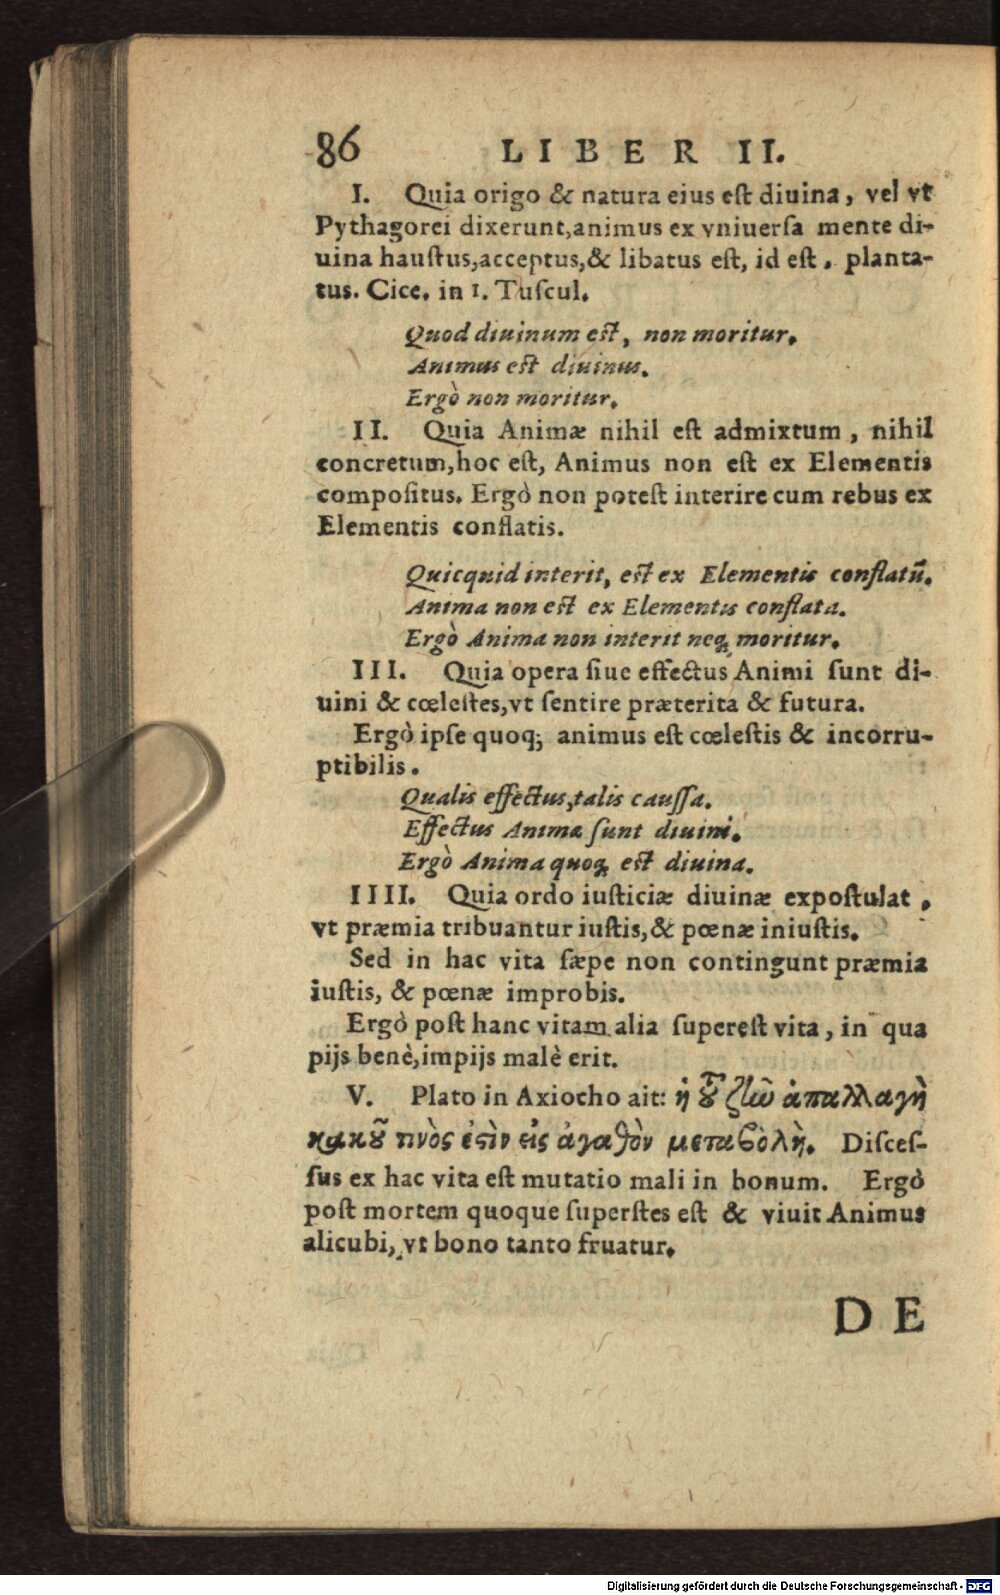 86 LIBER II.
I. Quia origo & natura eius est diuina, vel vt
Pythagorei dixerunt,animus ex vniuersa mente di-
uina haustus,acceptus,& libatus est, id est, planta-
tus. Cice. in 1. Tuscul.
Quod diuinum est, non moritur.
Animus est diuinus.
Ergò non moritur.
II. Quia Animæ nihil est admixtum, nihil
concretum,hoc est, Animus non est ex Elementis
compositus. Ergò non potest interire cum rebus ex
Elementis conflatis.
Quicquid interit, est ex Elementis conflatũ.
Anima non est ex Elementis conflata.
Ergò Anima non interit neq; moritur.
III. Quia opera siue effectus Animi sunt di-
uini & cœlestes,vt sentire præterita & futura.
Ergò ipse quoq; animus est cœlestis & incorru-
ptibilis.
Qualis effectus,talis caussa.
Effectus Animæ sunt diuini.
Ergò Anima quoq; est diuina.
IIII. Quia ordo iusticiæ diuinæ expostulat,
vt præmia tribuantur iustis,& pœnæ iniustis.
Sed in hac vita sæpe non contingunt præmia
iustis, & pœnæ improbis.
Ergò post hanc vitam alia superest vita, in qua
pijs benè,impijs malè erit.
V. Plato in Axiocho ait: ἡ τοῦ ζῆν ἀπαλλαγὴ
κακοῦ τινὸς ἐστὶν εἰς ἀγαθὸν μεταβολὴ. Disces-
sus ex hac vita est mutatio mali in bonum. Ergò
post mortem quoque superstes est & viuit Animus
alicubi, vt bono tanto fruatur.
DE
Digitalisierung gefördert durch die Deutsche Forschungsgemeinschaft - DFG